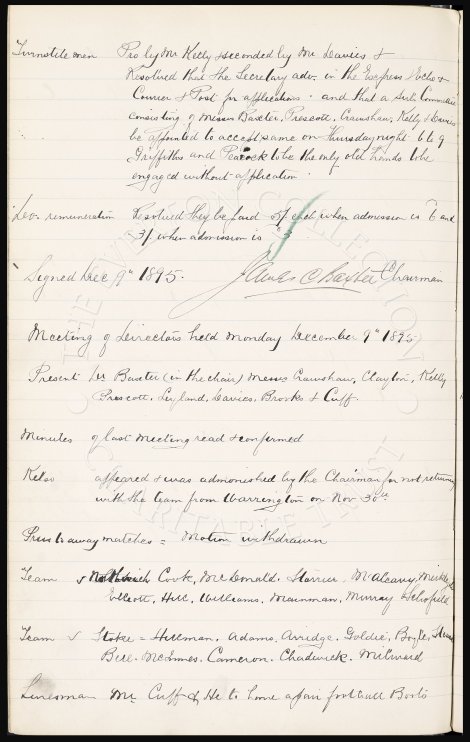 Turnstile men Pro by Mr Kelly & seconded by Mr Davies &
Resolved that the Secretary adv. in the Express Echo &
Courier & Post for applications. and that a Sub Committee
consisting of Messrs Baxter, Prescott, Crawshaw, Kelly & Davies
be appointed to accept same on Thursday night 6 to 9
Griffiths and Peacock to be the only old hands to be
engaged without application.
Do remuneration Resolved they be paid 5/ each when admission is 6 and
3/ when admission is 3
Signed Dec 9th 1895. James C Baxter Chairman
Meeting of Directors held Monday December 9th 1895
Present Dr Baxter (in the chair) Messrs Crawshaw, Clayton, Kelly
Prescott, Leyland, Davies, Brooks & Cuff.
Minutes of last meeting read & confirmed
Kelso appeared & was admonished by the Chairman for not returning
with the team from Warrington on Nov 30th
Press to away matches = Motion withdrawn
Team v Cook, McDonald. Storrier. McAleavy,
Elliott, Hill, Williams, Mainman, Murray Schofield
Team v Stoke = Hillman. Adams, Arridge, Goldie, Boyle,
Bell. McInnes. Cameron. Chadwick. Milward
Linesman Mr Cuff & He to have a pair football Boots
THE EVERTON COLLECTION
CHARITABLE TRUST